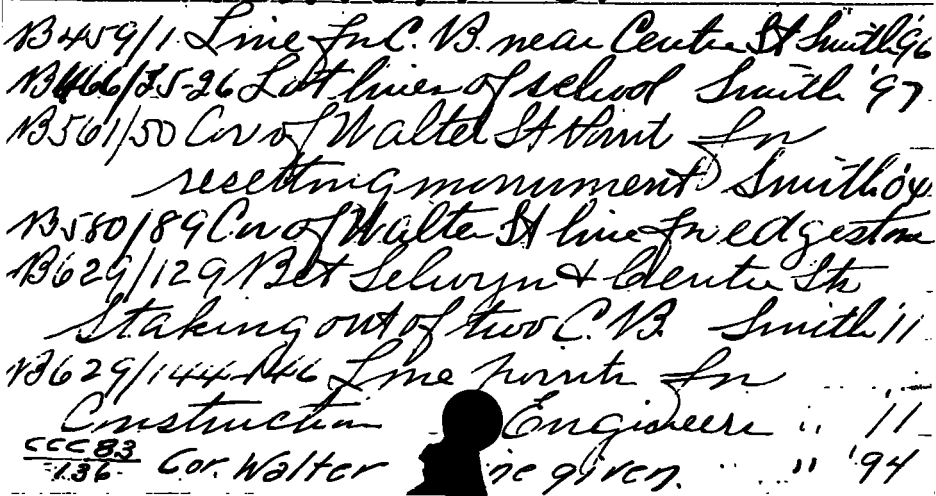 NB459/1 Line for C.B. near Centre St Smith '96
NB466/25-26 Lot lines of school Smith '97
NB561/50 Cor of Walter St Point for
resetting monument Smith '04
NB580/89 Cor of Walter St line for edgestone
NB629/129 Bet Selwyn & Centre Sts
Staking out of two C.B. Smith '11
NB629/144-146 Line points for
Construction Engineers " '11
CCC83
136 Cor. Walter given. " '94